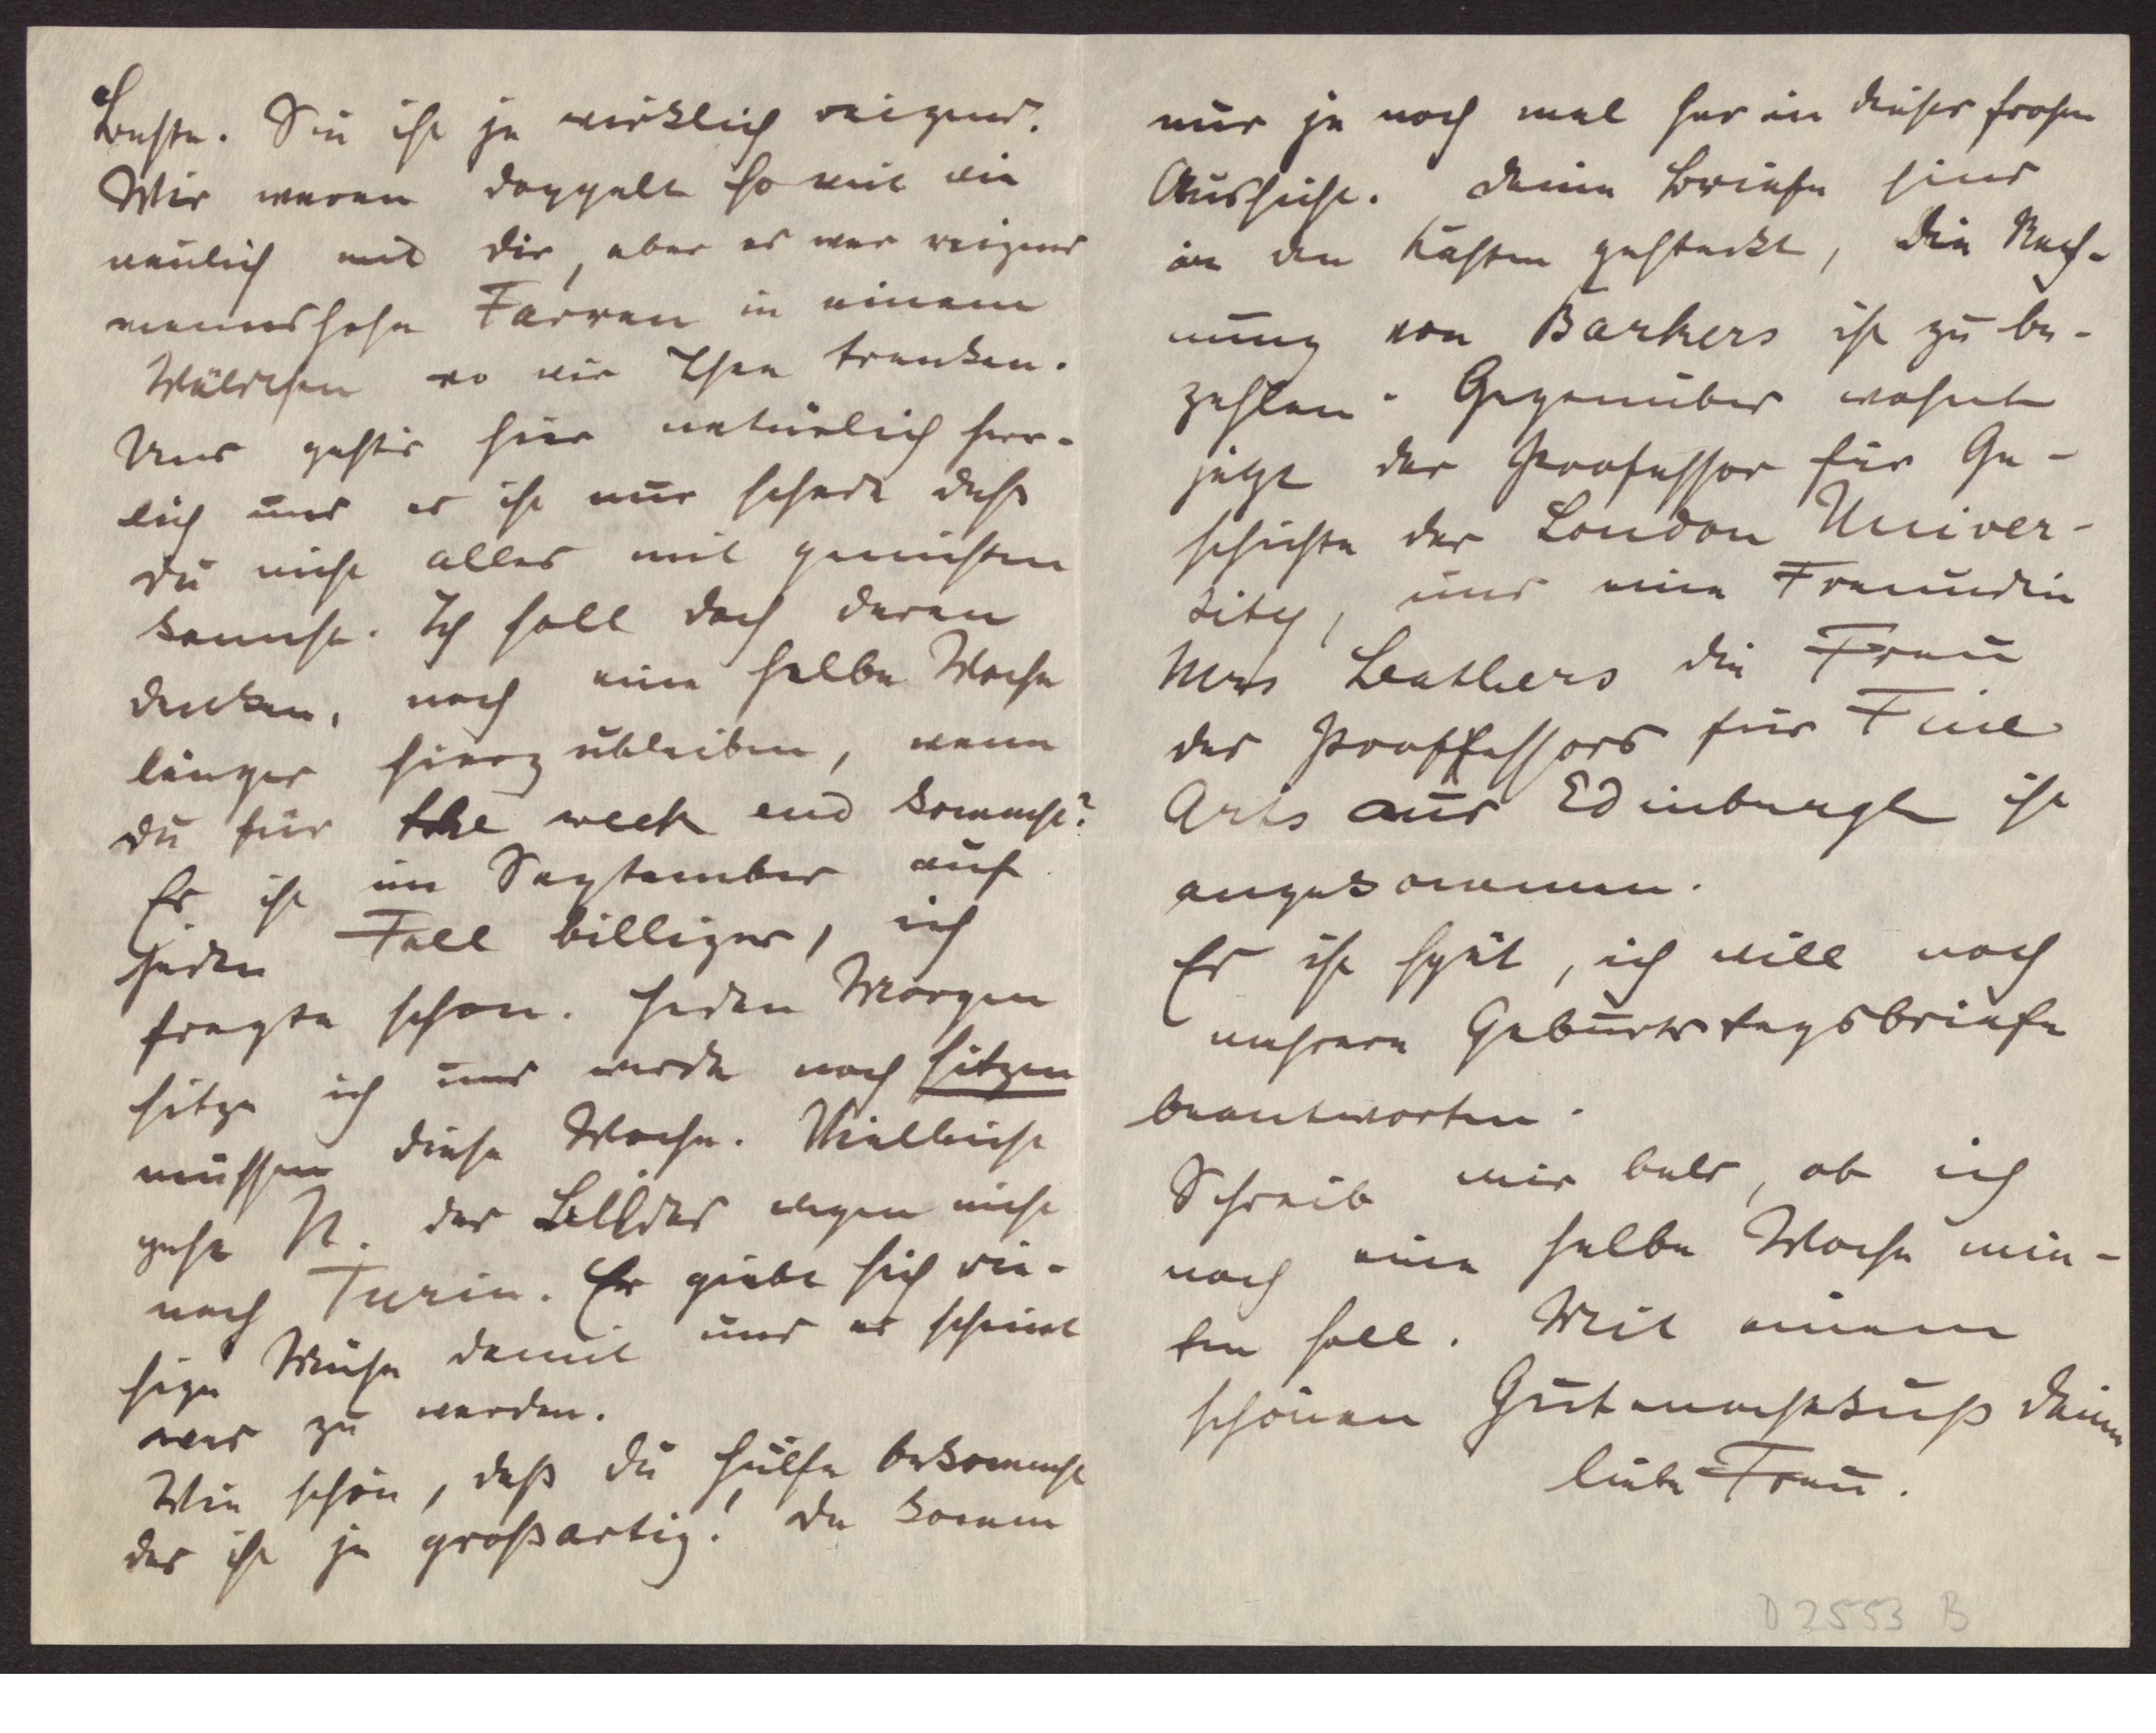 Beste. Sie ist ja wirklich reizend.
Wir waren doppelt so weit wie
neulich mit dir, aber es war reizend
mannshohe Farren in einem
Wäldchen wo wir Thee tranken.
Uns gehts hier natürlich herr-
lich und es ist nur schade daß
du nicht alles mit genießen
kannst. Ich soll doch daran
denken, noch eine halbe Woche
länger hierzubleiben, wenn
du für the week end kommst?
Es ist im September auf
jeden Fall billiger, ich
fragte schon. Jeden Morgen
sitze ich und werde noch sitzen
müssen diese Woche. Vielleicht
geht N. des Bildes wegen nicht
nach Turin. Er giebt sich rie-
sige Mühe damit und es scheint
was zu werden.
Wie schön, daß du Hülfe bekommst
das ist ja großartig! Da komm
nur ja noch mal her in dieser frohen
Aussicht. Deine Briefe sind
in den Kasten gesteckt, die Rech-
nung von Barkers ist zu be-
zahlen. Gegenüber wohnt
jetzt der Professor für Ge-
schichte der London Univer-
sity, und eine Freundin
Mrs Leathers die Frau
des Proffessors für Fine
Arts aus Edinburgh ist
angekommen.
Es ist spät, ich will noch
mehrere Geburtstagsbriefe
beantworten.
Schreib mir bald, ob ich
noch eine halbe Woche mie-
ten soll. Mit einem
schönen Gutenachtkuß deine
liebe Frau.
D 2553 B